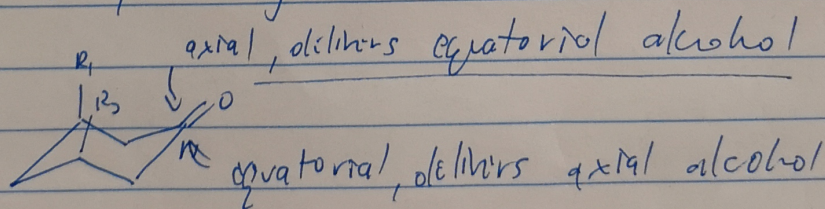 axial, delihirs equatorial alcohol
R₁
R₃ O
equatorial, delihirs axial alcohol